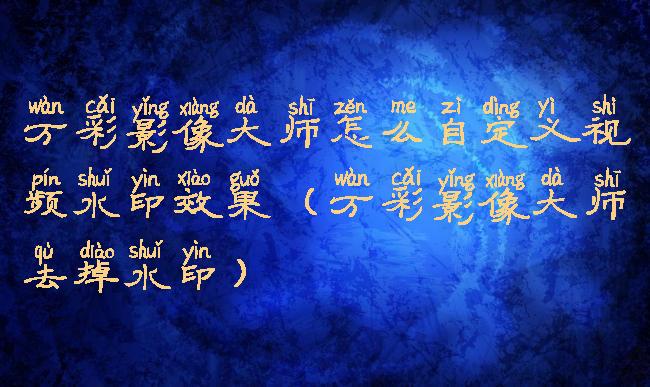 wàn cǎi yǐng xiàng dà shī zěn me zì dìng yì shì
万彩影像大师怎么自定义视
pín shuǐ yìn xiào guǒ wàn cǎi yǐng xiàng dà shī
频水印效果（万彩影像大师
qù diào shuǐ yìn
去掉水印）